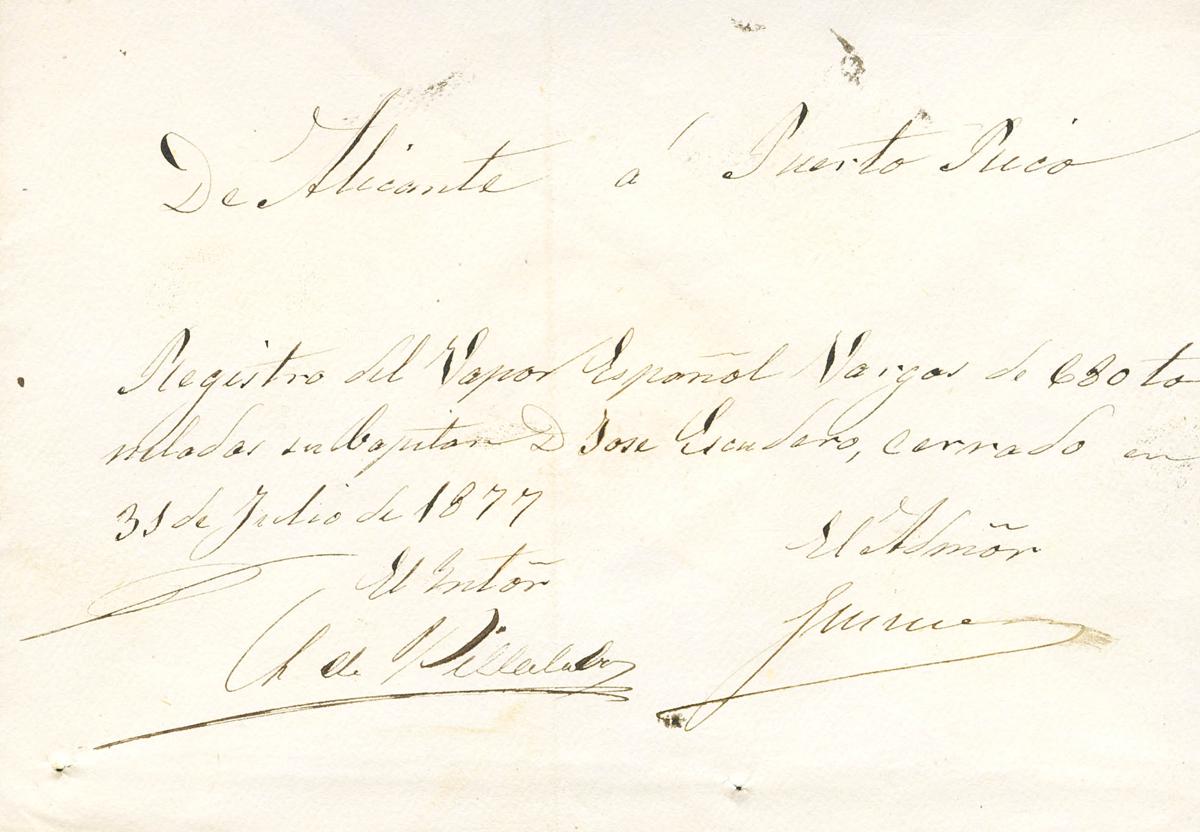 De Alicante á Puerto Rico
Registro del Vapor Español Vargas de 680 to
neladas su Capitan D Jose Escudero, cerrado en
31 de Julio de 1877
El Admõr
El Intõr
Ch de Villalobos